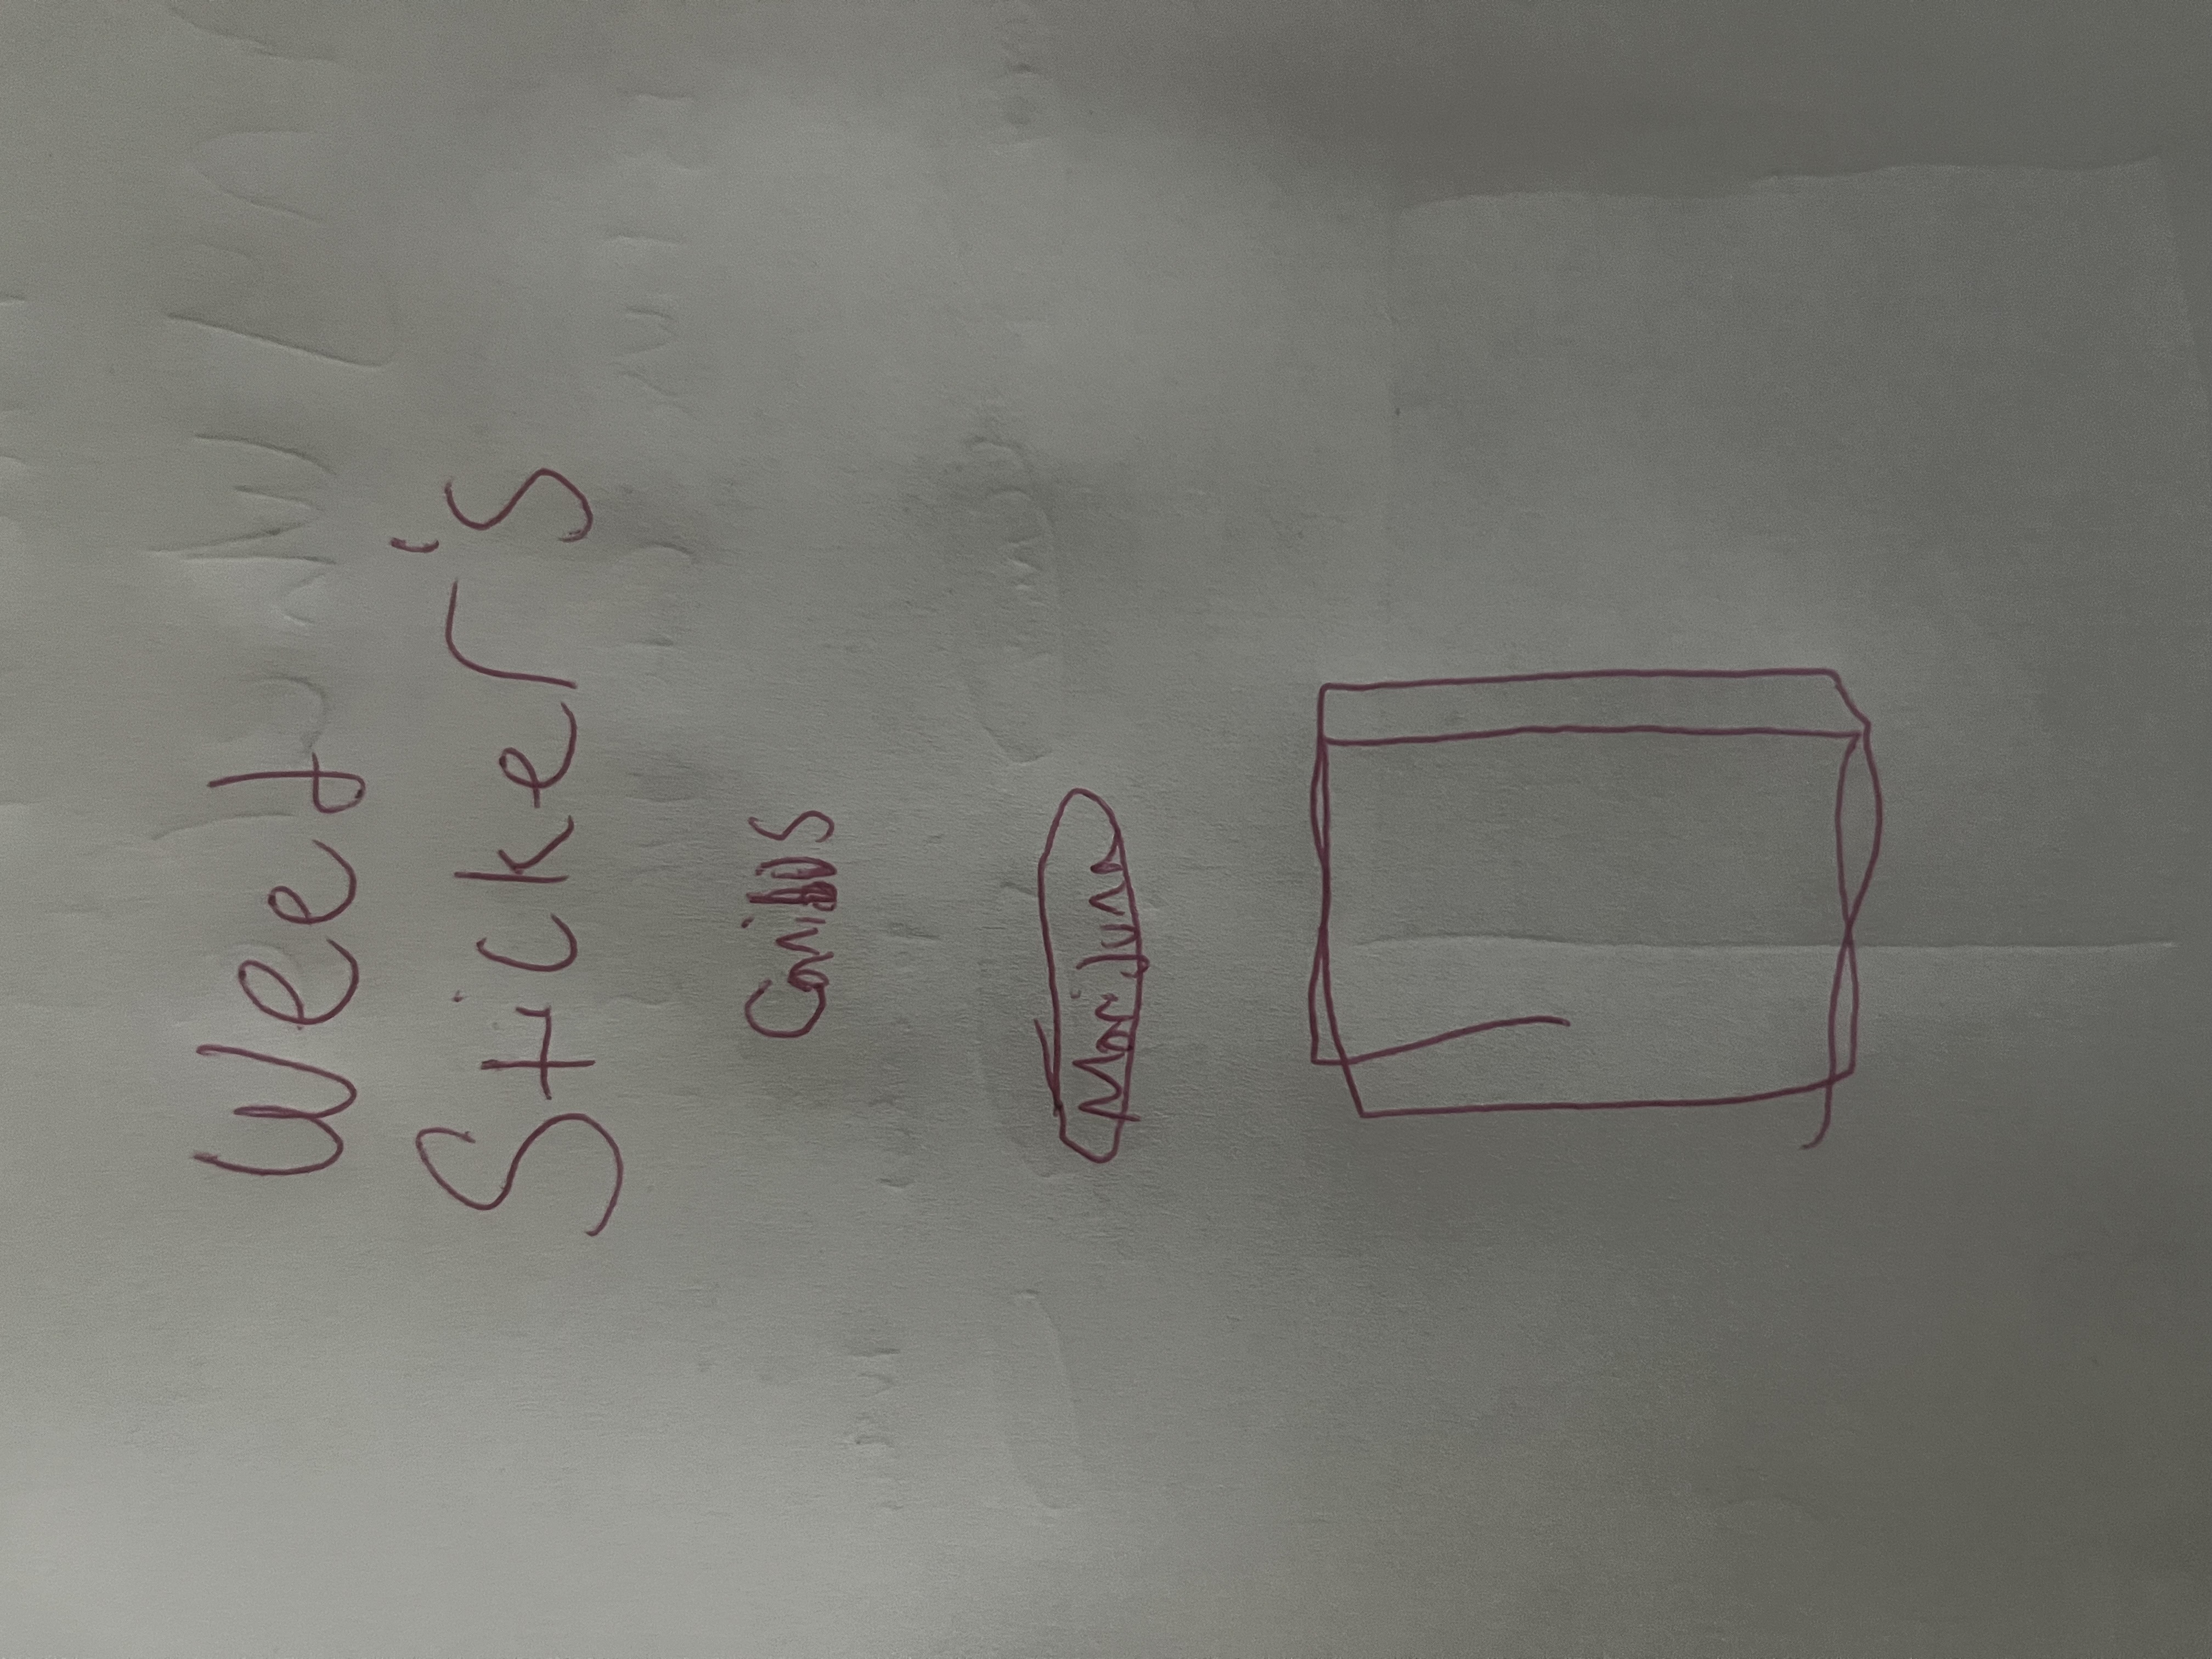 Weed
Sticker's
Canibus
Marijuna